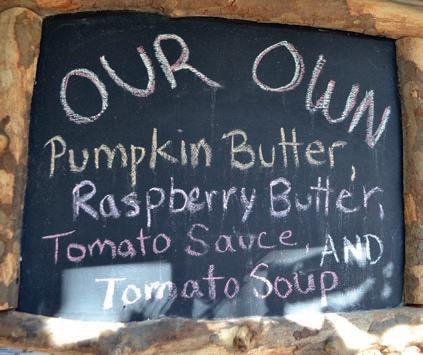 OUR OWN
Pumpkin Butter,
Raspberry Butter,
Tomato Sauce, AND
Tomato Soup